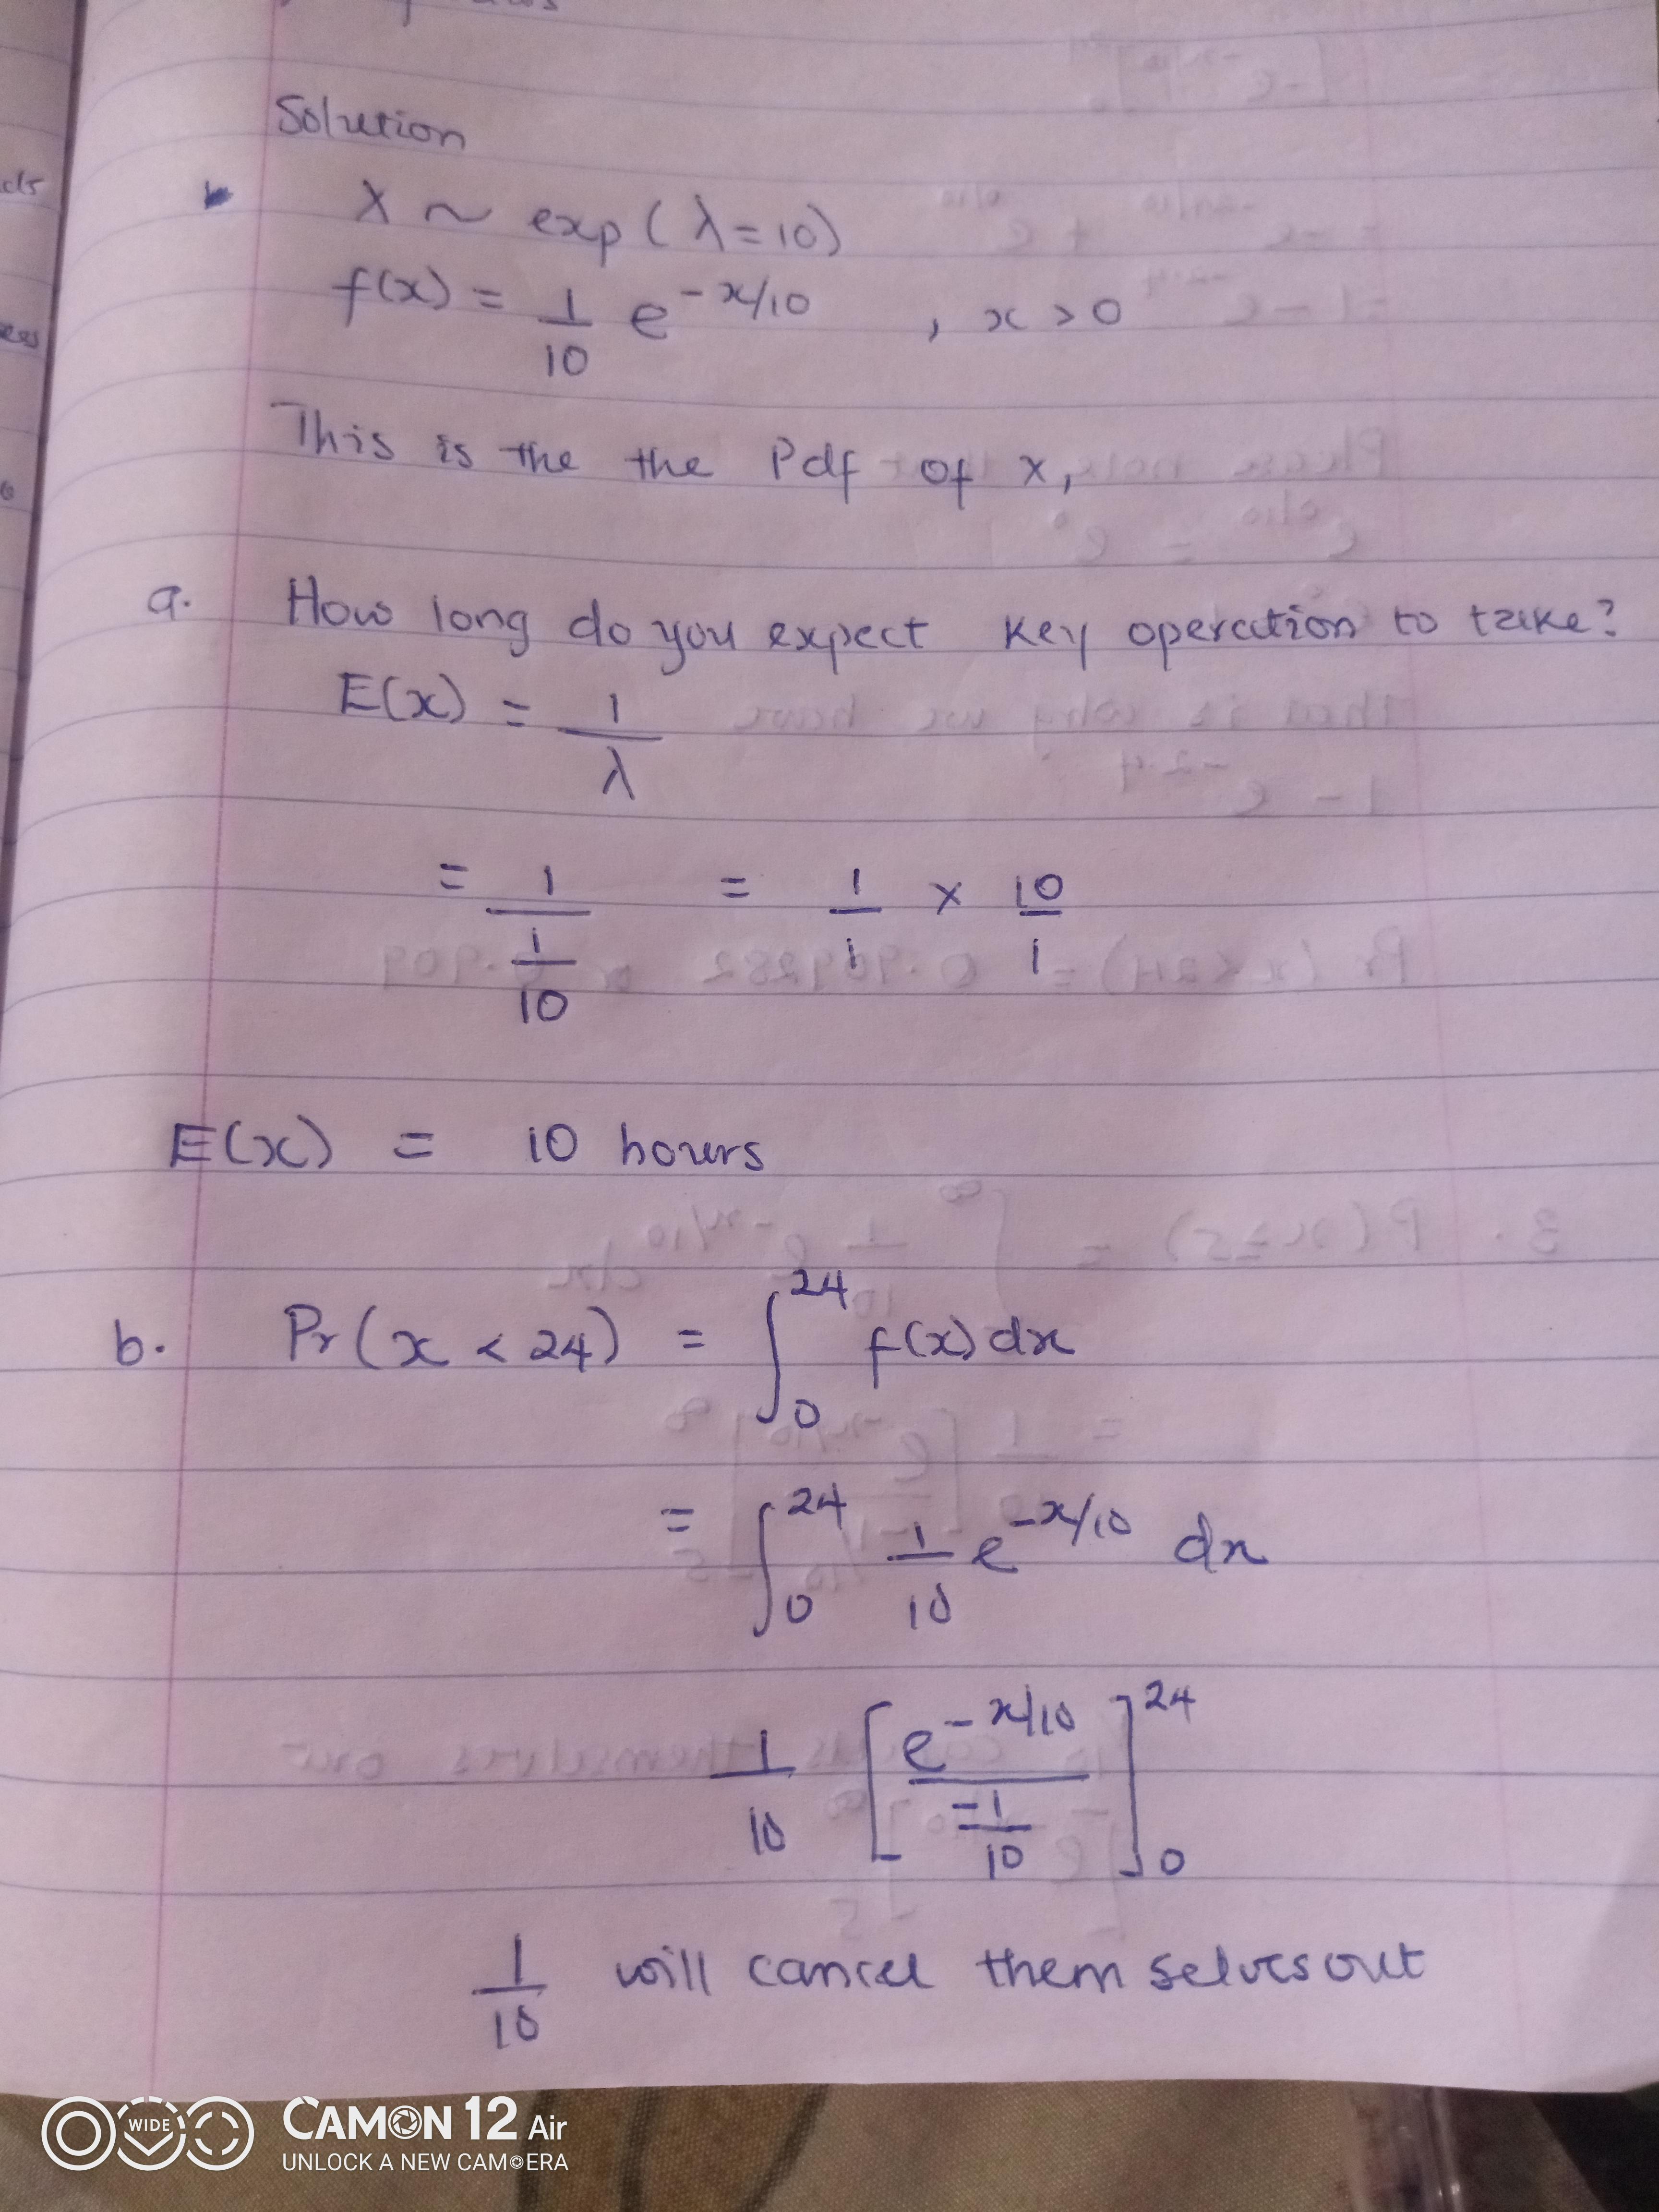 Solution
X ~ exp(λ=10)
f(x) = 1/10 e^-x/10 , x > 0
This is the the Pdf of x,
a. How long do you expect key operation to take?
E(x) = 1/λ
= 1/(1/10) = 1/1 × 10/1
E(x) = 10 hours
b. Pr(x < 24) = ∫₀²⁴ f(x) dx
= ∫₀²⁴ 1/10 e^-x/10 dx
1/10 [e^-x/10 / (-1/10)]₀²⁴
1/10 will cancel them selves out
WIDE
CAMON 12 Air
UNLOCK A NEW CAMERA